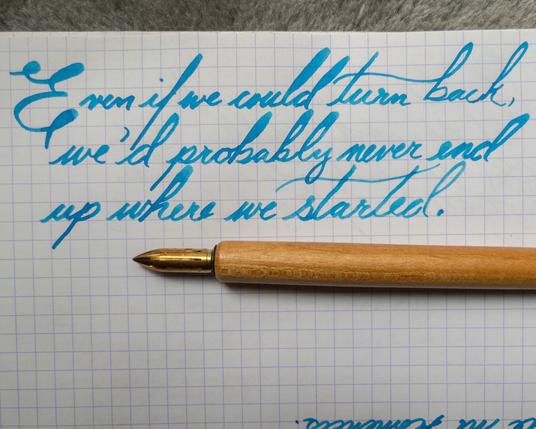 Even if we could turn back,
we'd probably never end
up where we started.